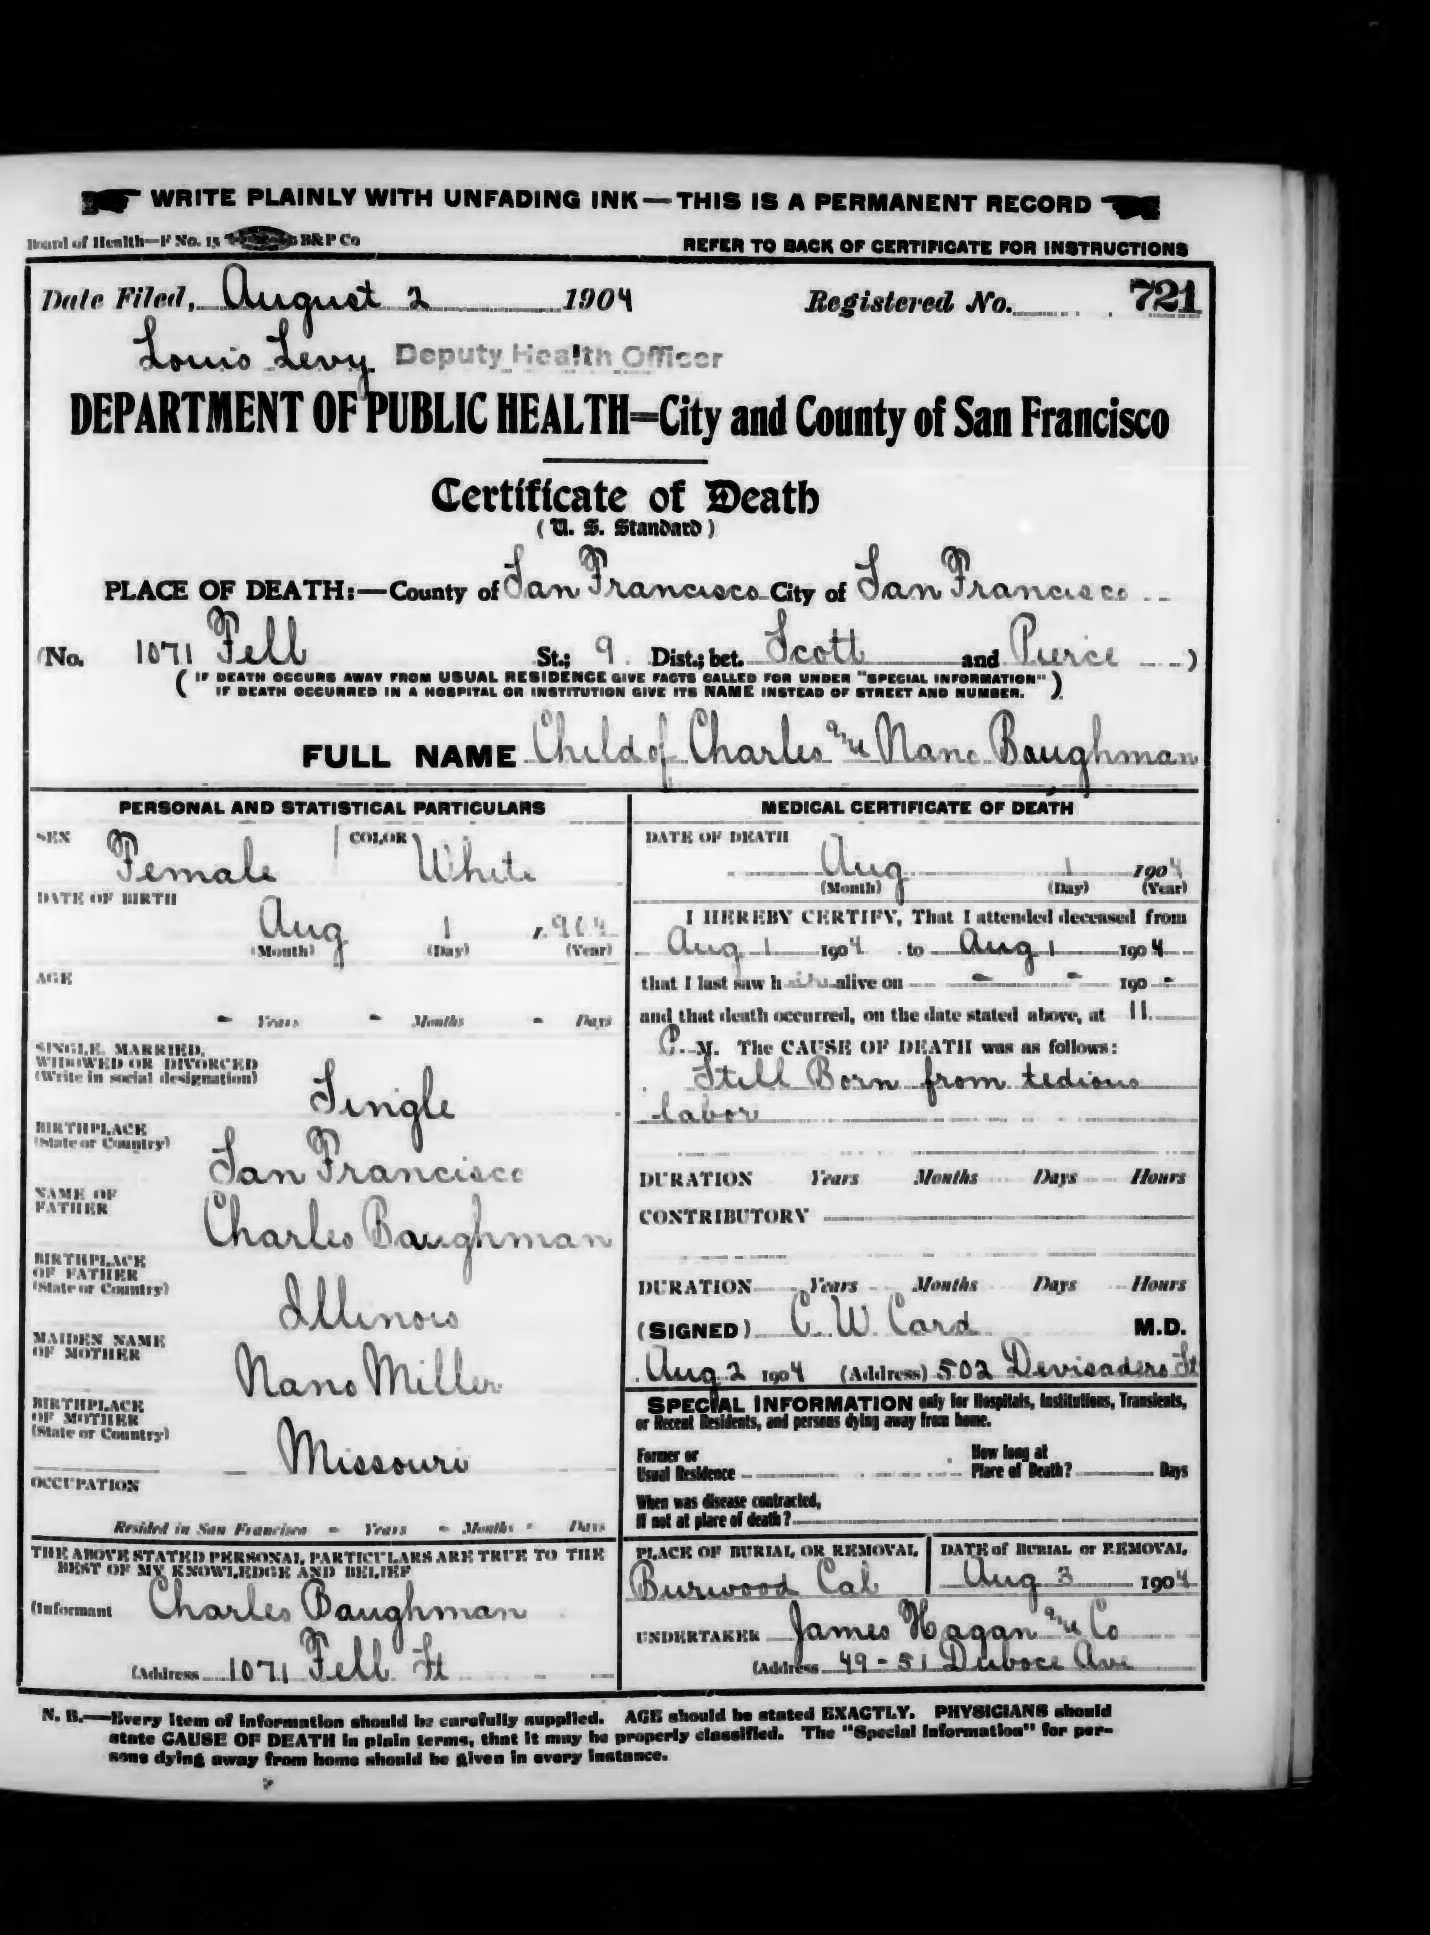 WRITE PLAINLY WITH UNFADING INK—THIS IS A PERMANENT RECORD
Board of Health—F No. 15 B&P Co
REFER TO BACK OF CERTIFICATE FOR INSTRUCTIONS
Date Filed, August 2 1904 Registered No. 721
Louis Levy Deputy Health Officer
DEPARTMENT OF PUBLIC HEALTH=City and County of San Francisco
Certificate of Death
(U. S. Standard)
PLACE OF DEATH:—County of San Francisco City of San Francisco
(No. 1071 Fell St.; 9 Dist.; bet. Scott and Pierce)
(IF DEATH OCCURS AWAY FROM USUAL RESIDENCE GIVE FACTS CALLED FOR UNDER "SPECIAL INFORMATION"
IF DEATH OCCURRED IN A HOSPITAL OR INSTITUTION GIVE ITS NAME INSTEAD OF STREET AND NUMBER.)
FULL NAME Child of Charles and Nano Baughman
PERSONAL AND STATISTICAL PARTICULARS
SEX Female COLOR White
DATE OF BIRTH
Aug 1 1904
(Month) (Day) (Year)
AGE
- Years - Months - Days
SINGLE, MARRIED,
WIDOWED OR DIVORCED
(Write in social designation)
Single
BIRTHPLACE
(State or Country)
San Francisco
NAME OF
FATHER
Charles Baughman
BIRTHPLACE
OF FATHER
(State or Country)
Illinois
MAIDEN NAME
OF MOTHER
Nano Miller
BIRTHPLACE
OF MOTHER
(State or Country)
Missouri
OCCUPATION
Resided in San Francisco - Years - Months - Days
THE ABOVE STATED PERSONAL PARTICULARS ARE TRUE TO THE
BEST OF MY KNOWLEDGE AND BELIEF
(Informant Charles Baughman
(Address 1071 Fell St
MEDICAL CERTIFICATE OF DEATH
DATE OF DEATH
Aug 1 1904
(Month) (Day) (Year)
I HEREBY CERTIFY, That I attended deceased from
Aug 1 1904 to Aug 1 1904
that I last saw h alive on - - 190 -
and that death occurred, on the date stated above, at 11
P. M. The CAUSE OF DEATH was as follows:
Still Born from tedious
labor
DURATION Years Months Days Hours
CONTRIBUTORY
DURATION Years Months Days Hours
(SIGNED) C. W. Card M.D.
Aug 2 1904 (Address) 502 Devisadero St
SPECIAL INFORMATION only for Hospitals, Institutions, Transients,
or Recent Residents, and persons dying away from home.
Former or
Usual Residence
How long at
Place of Death? Days
When was disease contracted,
If not at place of death?
PLACE OF BURIAL OR REMOVAL
Burwood Cal
DATE of BURIAL or REMOVAL
Aug 3 1904
UNDERTAKER James Hagan and Co
(Address 49-51 Duboce Ave
N. B.—Every item of information should be carefully supplied. AGE should be stated EXACTLY. PHYSICIANS should
state CAUSE OF DEATH in plain terms, that it may be properly classified. The "Special Information" for per-
sons dying away from home should be given in every instance.